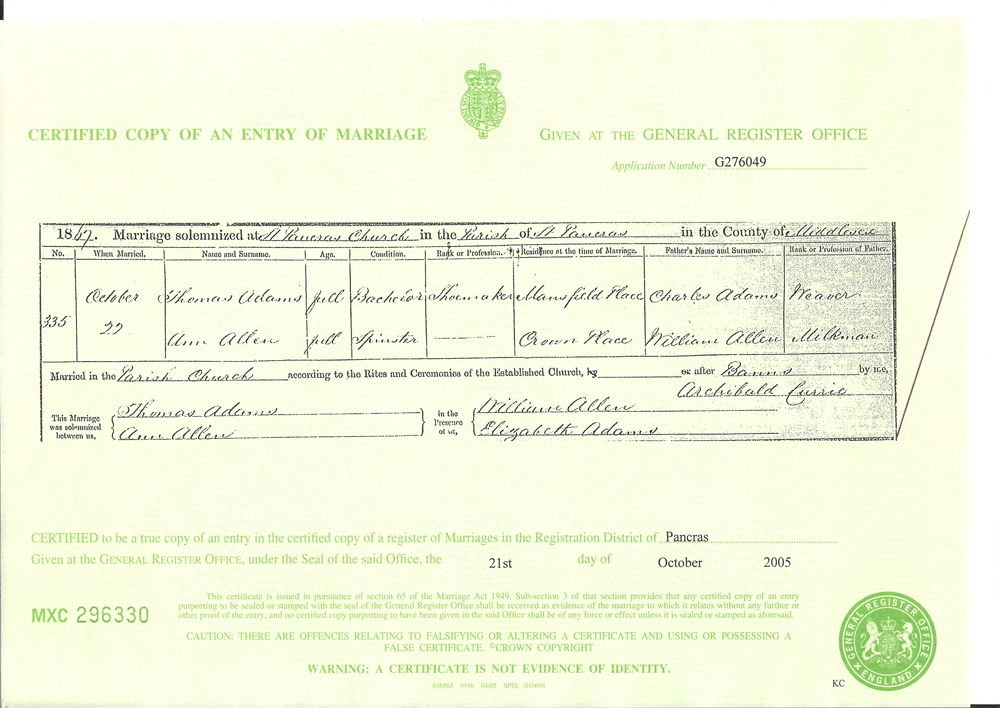 CERTIFIED COPY OF AN ENTRY OF MARRIAGE
GIVEN AT THE GENERAL REGISTER OFFICE
Application Number G276049
1867. Marriage solemnized at St Pancras Church in the Parish of St Pancras in the County of Middlesex
No. When Married. Name and Surname. Age. Condition. Rank or Profession. Residence at the time of Marriage. Father's Name and Surname. Rank or Profession of Father.
October Thomas Adams full Bachelor Shoemaker Mansfield Place Charles Adams Weaver
335 22 Ann Allen full Spinster Crown Place William Allen Milkman
Married in the Parish Church according to the Rites and Ceremonies of the Established Church, by or after Banns by me,
Archibald Currie
This Marriage was solemnized between us,
Thomas Adams
Ann Allen
in the Presence of us,
William Allen
Elizabeth Adams
CERTIFIED to be a true copy of an entry in the certified copy of a register of Marriages in the Registration District of Pancras
Given at the GENERAL REGISTER OFFICE, under the Seal of the said Office, the 21st day of October 2005
MXC 296330
This certificate is issued in pursuance of section 65 of the Marriage Act 1949. Sub-section 3 of that section provides that any certified copy of an entry
purporting to be sealed or stamped with the seal of the General Register Office shall be received as evidence of the marriage to which it relates without any further or
other proof of the entry, and no certified copy purporting to have been given in the said Office shall be of any force or effect unless it is sealed or stamped as aforesaid.
CAUTION: THERE ARE OFFENCES RELATING TO FALSIFYING OR ALTERING A CERTIFICATE AND USING OR POSSESSING A
FALSE CERTIFICATE. ©CROWN COPYRIGHT
WARNING: A CERTIFICATE IS NOT EVIDENCE OF IDENTITY.
036563 9198 04/05 SPSL 010694
GENERAL REGISTER OFFICE
ENGLAND
KC